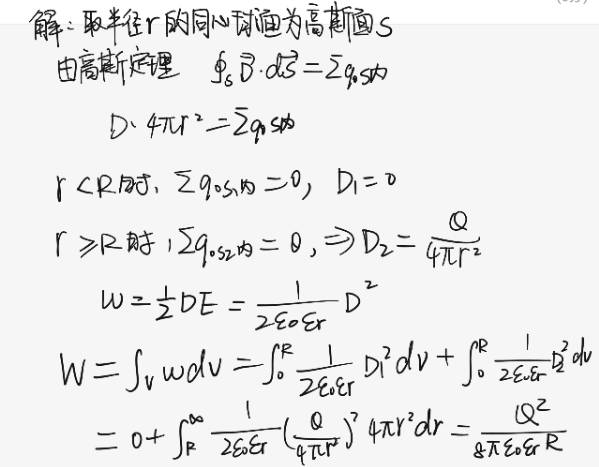 解:取半径r的同心球面为高斯面S
由高斯定理 ∮ₛD⃗·dS⃗=Σq₀S内
D·4πr²=Σq₀S内
r<R时, Σq₀S₁内=0, D₁=0
r≥R时, Σq₀S₂内=Q, ⇒D₂=Q/4πr²
w=½DE=1/(2ε₀εr) D²
W=∫ᵥwdv=∫₀ᴿ 1/(2ε₀εr) D₁²dv+∫₀ᴿ 1/(2ε₀εr) D₂²dv
=0+∫_R^∞ 1/(2ε₀εr) (Q/4πr²)² 4πr²dr=Q²/(8πε₀εrR)